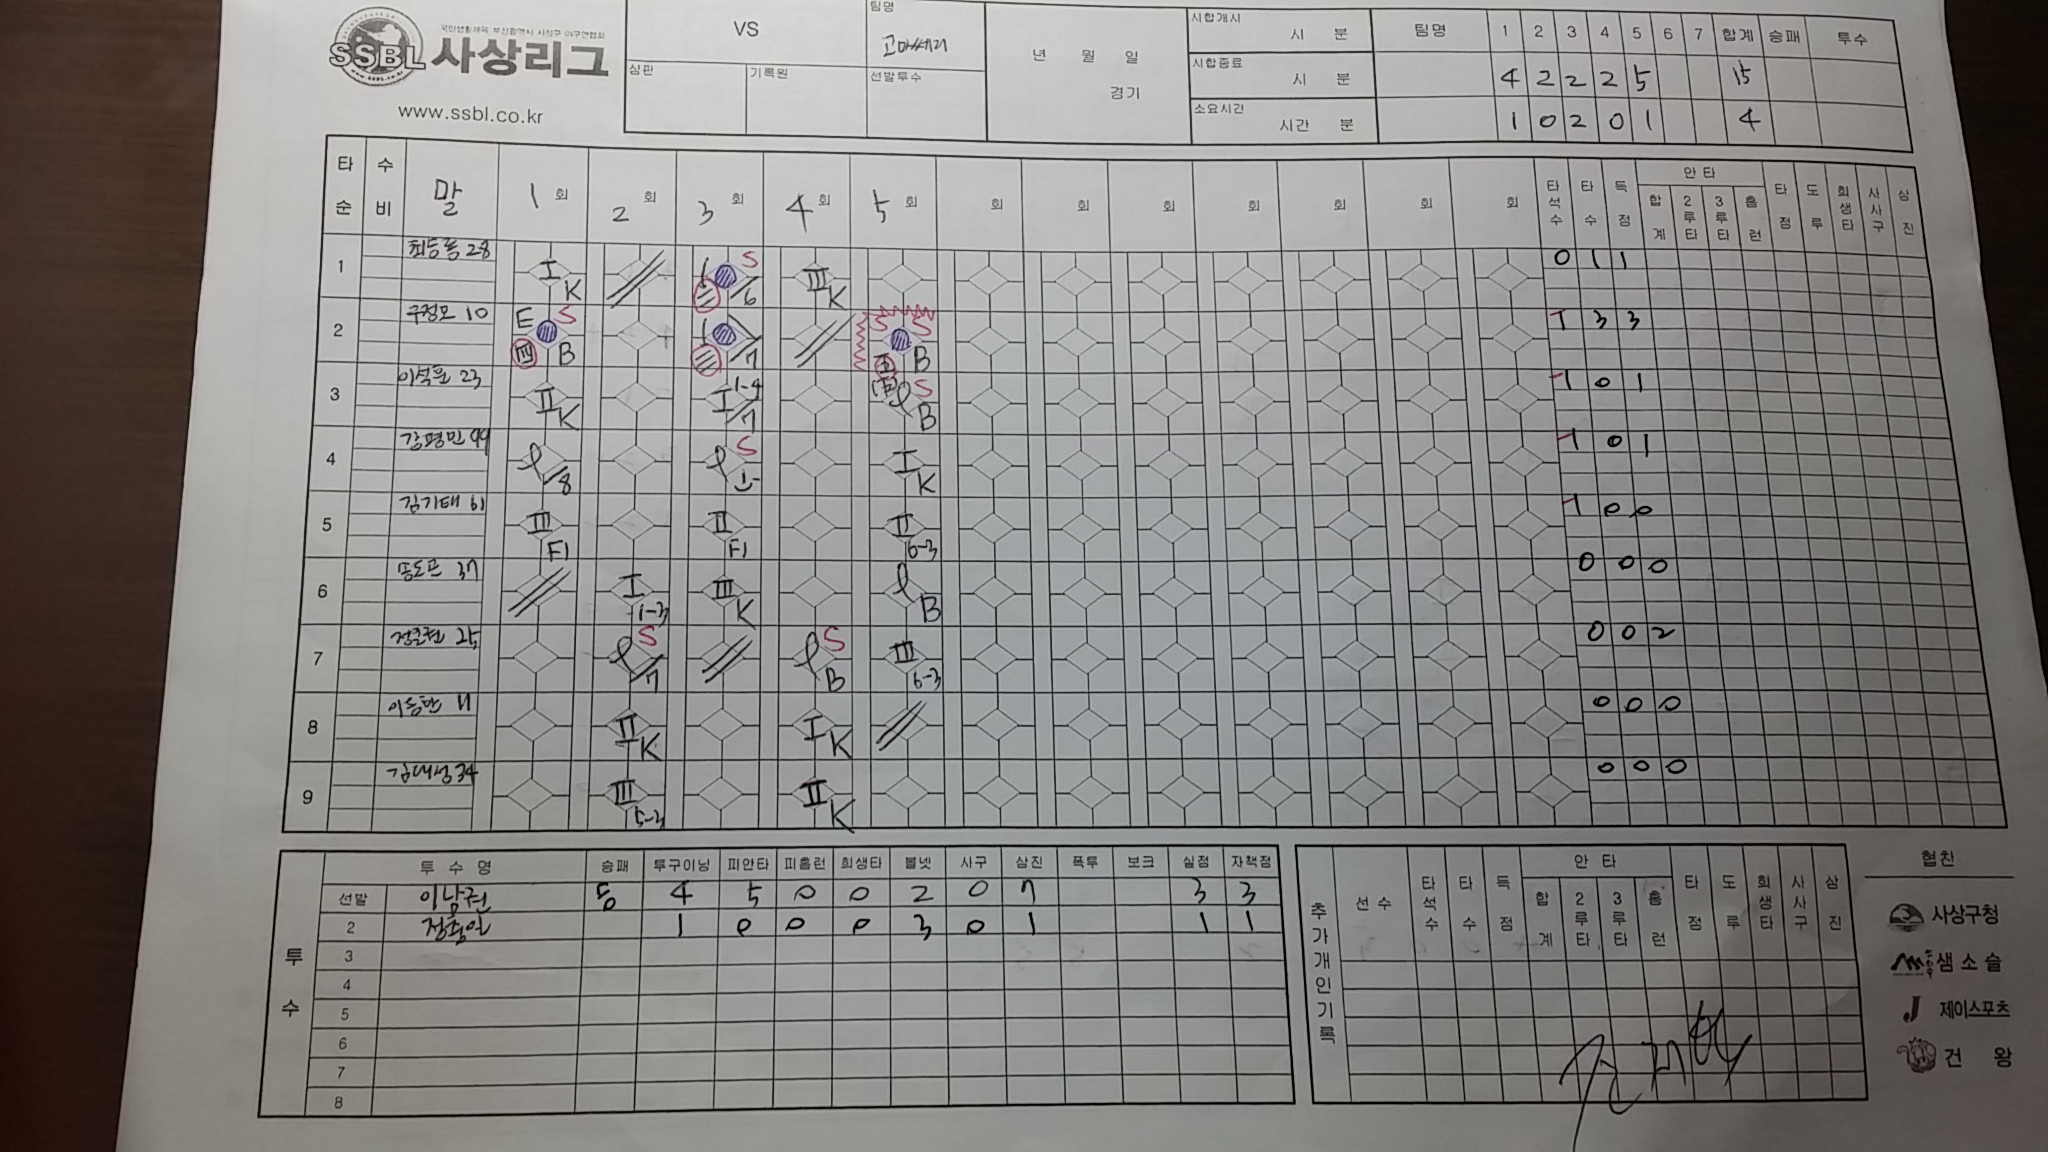 국민생활체육 부산광역시 사상구 야구연합회
SSBL 사상리그
www.ssbl.co.kr
VS
팀명
고마쎄리
심판
기록원
선발투수
년 월 일
경기
시합개시 시 분
시합종료 시 분
소요시간 시간 분
팀명 1 2 3 4 5 6 7 합계 승패 투수
4 2 2 2 5 15
1 0 2 0 1 4
타순 수비 말 1회 2회 3회 4회 5회 회 회 회 회 회 회 회 타석수 타수 득점 안타 합계 2루타 3루타 홈런 타점 도루 희생타 사사구 삼진
1 최동통 28 I K S 6 III K 0 1 1
2 구정모 10 E S B 7 S S B 1 3 3
3 이석훈 23 II K I 1-4 7 S B 1 0 1
4 강평민 99 8 S I K 1 0 1
5 김기태 61 III F1 II F1 II 6-3 1 0 0
6 37 I 1-3 III K B 0 0 0
7 25 S 7 S B III 6-3 0 0 2
8 11 II K I K 0 0 0
9 김대성 34 III 5-3 II K 0 0 0
투수
투수명 승패 투구이닝 피안타 피홈런 희생타 볼넷 사구 삼진 폭투 보크 실점 자책점
선발 이남권 4 5 0 0 2 0 7 3 3
2 1 0 0 0 3 0 1 1 1
3
4
5
6
7
8
추가개인기록
선수 타석수 타수 득점 안타 합계 2루타 3루타 홈런 타점 도루 희생타 사사구 삼진
협찬
사상구청
샘소슬
제이스포츠
건왕